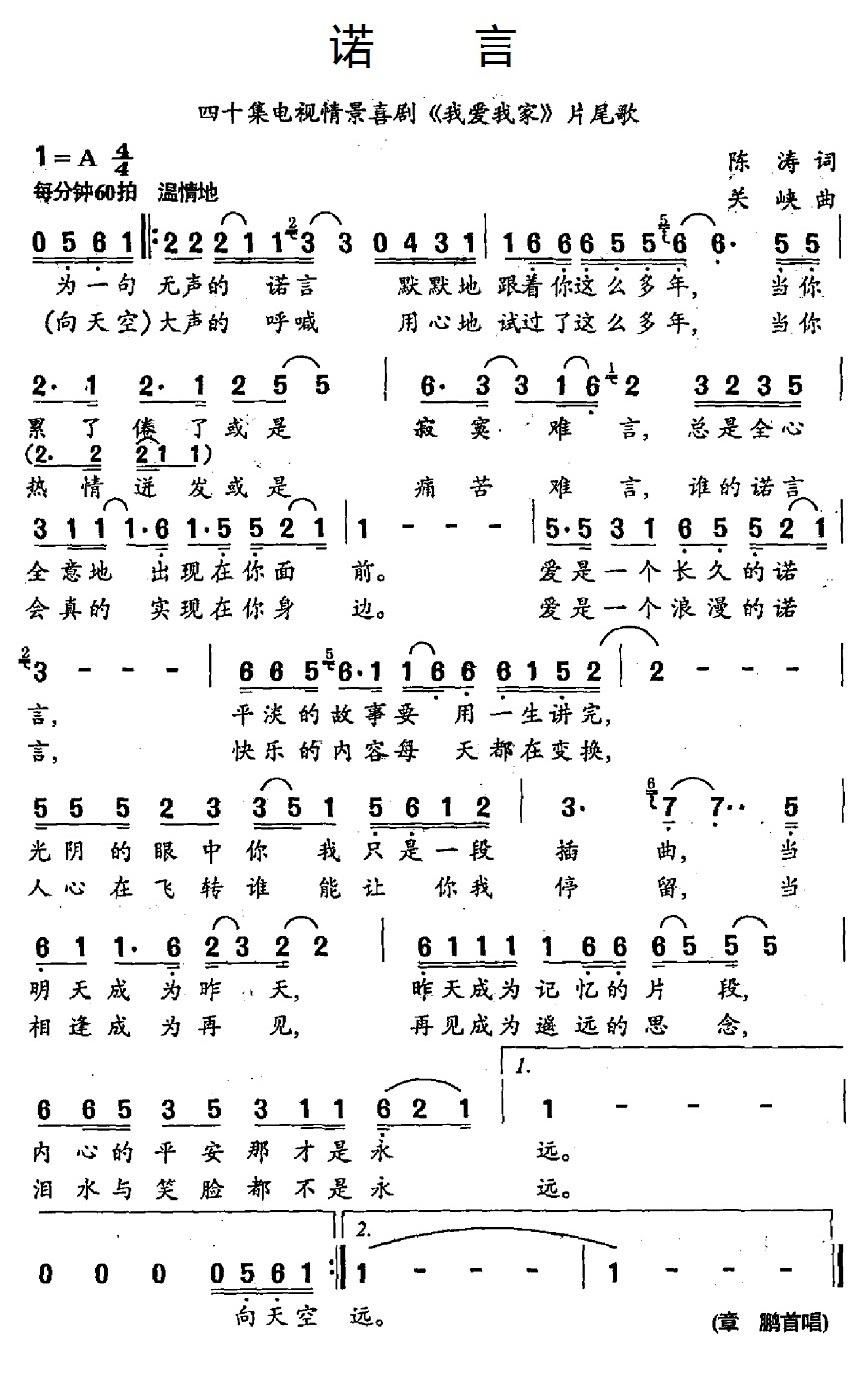 诺 言
四十集电视情景喜剧《我爱我家》片尾歌
1=A 4/4
陈 涛 词
每分钟60拍 温情地
关 峡 曲
0 5 6 1 |: 2 2 2 1 1 2 3 3 0 4 3 1 | 1 6 6 6 5 5 5 6 6· 5 5 |
为一句 无声的 诺言 默默地 跟着你这么多年, 当你
(向天空)大声的 呼喊 用心地 试过了这么多年, 当你
2· 1 2· 1 2 5 5 | 6· 3 3 1 6 1 2 3 2 3 5 |
累了倦了或是 寂寞 难言, 总是全心
(2· 2 2 1 1)
热情迸发或是 痛苦 难言, 谁的诺言
3 1 1 1· 6 1· 5 5 2 1 | 1 - - - | 5· 5 3 1 6 5 5 2 1 |
全意地 出现在你面 前。 爱是一个长久的诺
会真的 实现在你身 边。 爱是一个浪漫的诺
2 3 - - - | 6 6 5 5 6· 1 1 6 6 6 1 5 2 | 2 - - - |
言, 平淡的故事要 用一生讲完,
言, 快乐的内容每 天都在变换,
5 5 5 2 3 3 5 1 5 6 1 2 | 3· 6 7 7·· 5 |
光阴的眼中你 我只是一段 插 曲, 当
人心在飞转谁 能让 你我 停 留, 当
6 1 1· 6 2 3 2 2 | 6 1 1 1 1 6 6 6 5 5 5 |
明天成为昨 天, 昨天成为记忆的片 段,
相逢成为再 见, 再见成为遥远的思 念,
6 6 5 3 5 3 1 1 6 2 1 | 1. 1 - - - |
内心的平安那才是永 远。
泪水与笑脸都不是永 远。
0 0 0 0 5 6 1 :| 2. 1 - - - | 1 - - - ‖
向天空 远。
(章 鹏首唱)